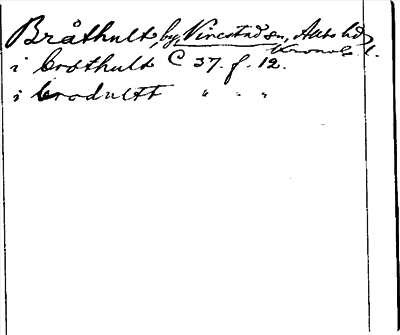 Bråthult, by, Vinestad sn, Allbo hd,
Kronob. l.
i brothult C 37. f. 12.
i brodultt " " "